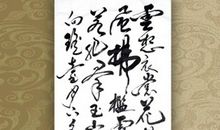 雲想衣裳花
風拂檻露
若非羣玉山
向瑤臺月下